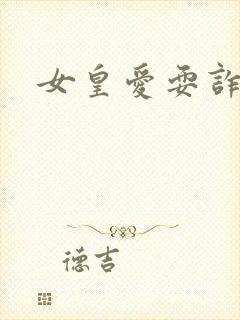 女皇愛耍詐
德吉